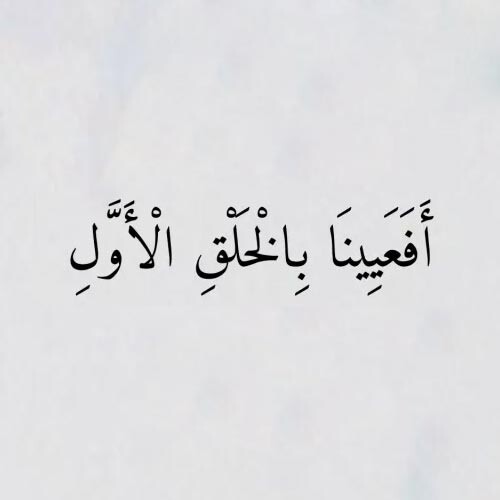 أَفَعَيِينَا بِالْخَلْقِ الْأَوَّلِ